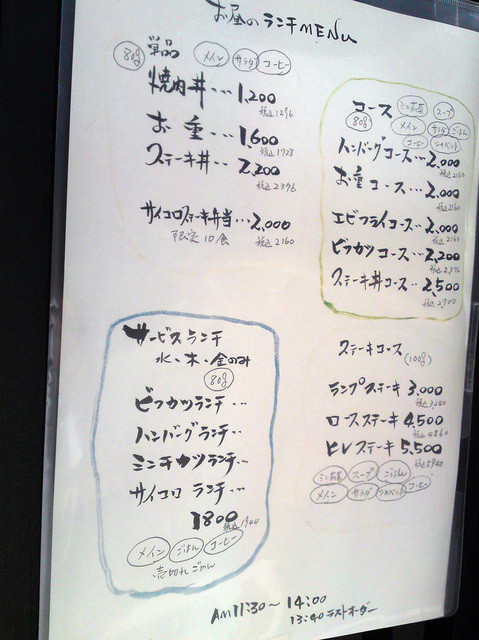 お昼のランチMENU
80g 単品 メイン サラダ コーヒー
焼肉丼・・・1,200
税込1296
お重・・・1,600
税込1728
ステーキ丼・・・2,200
税込2376
サイコロステーキ弁当・・・2,000
限定10食 税込2160
コース ミニ前菜 スープ
80g メイン サラダ ごはん
コーヒー シャーベット
ハンバーグコース・・・2,000
税込2160
お重コース・・・2,000
税込2160
エビフライコース・・・2,000
税込2160
ビフカツコース・・・2,200
税込2376
ステーキ丼コース・・・2,500
税込2,700
サービスランチ
水・木・金のみ
80g
ビフカツランチ・・・
ハンバーグランチ・・・
ミンチカツランチ・・・
サイコロランチ・・・
1800 税込1944
メイン ごはん コーヒー
売切れごめん
ステーキコース (100g)
ランプステーキ 3,000
税込3,240
ロースステーキ 4,500
税込4860
ヒレステーキ 5,500
税込5940
ミニ前菜 スープ ごはん
メイン サラダ シャーベット コーヒー
AM11:30〜14:00
13:40ラストオーダー